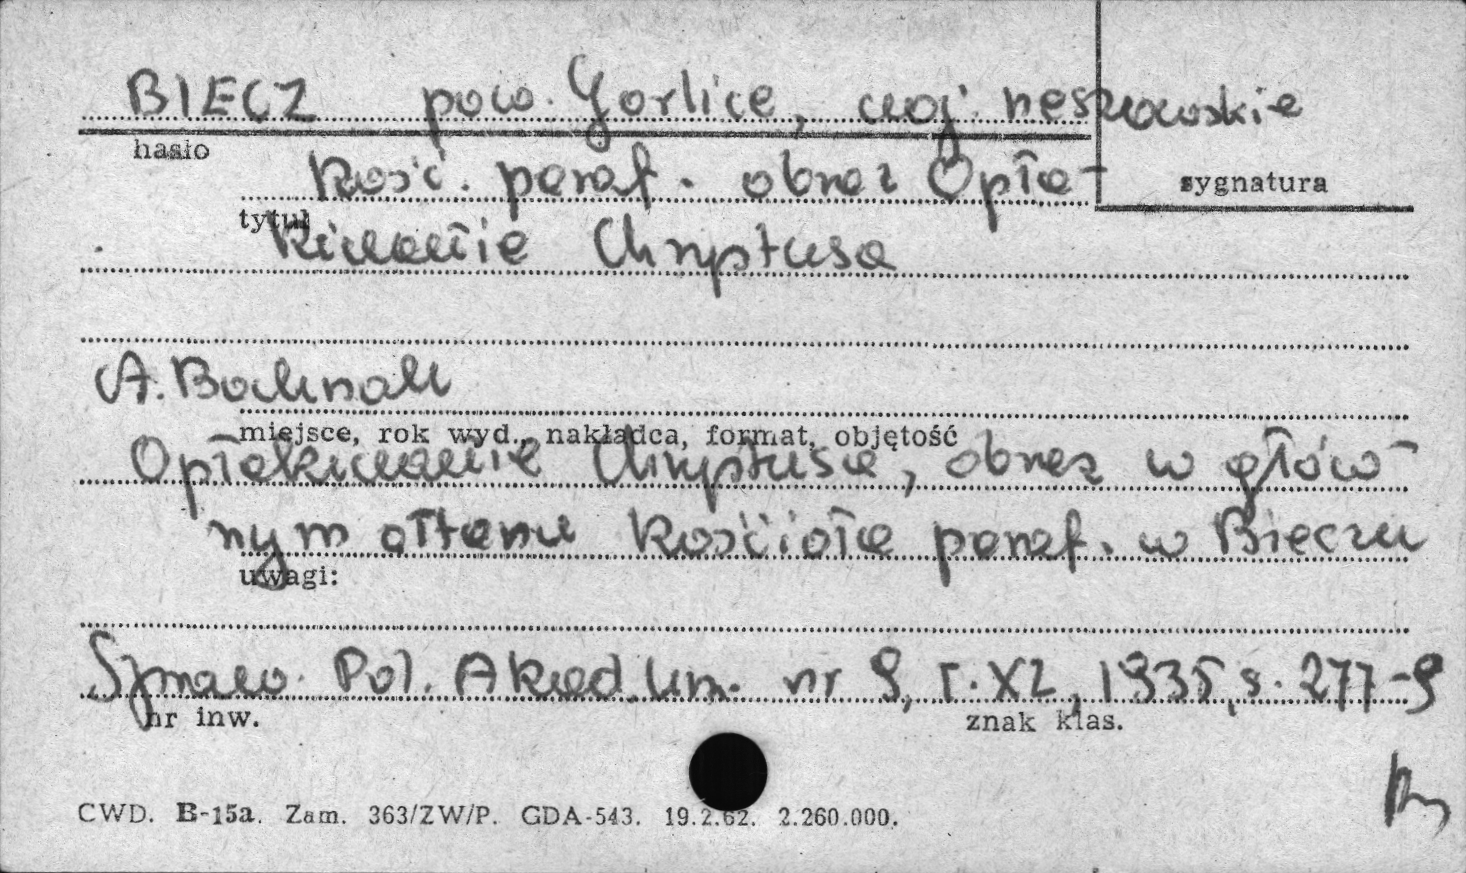 BIECZ pow. Gorlice, woj. rzeszowskie
hasło
Kość. paraf. obraz Opła-
sygnatura
tytuł
kiwanie Chrystusa
A. Bochnak
miejsce, rok wyd., nakładca, format, objętość
Opłakiwanie Chrystusa, obraz w głów-
nym ołtarzu kościoła paraf. w Bieczu
uwagi:
Sprawo. Pol. Akad. Um. nr 9, T. XL, 1935, s. 277-9
nr inw.
znak klas.
CWD. B-15a. Zam. 363/ZW/P. GDA-543. 19.2.62. 2.260.000.